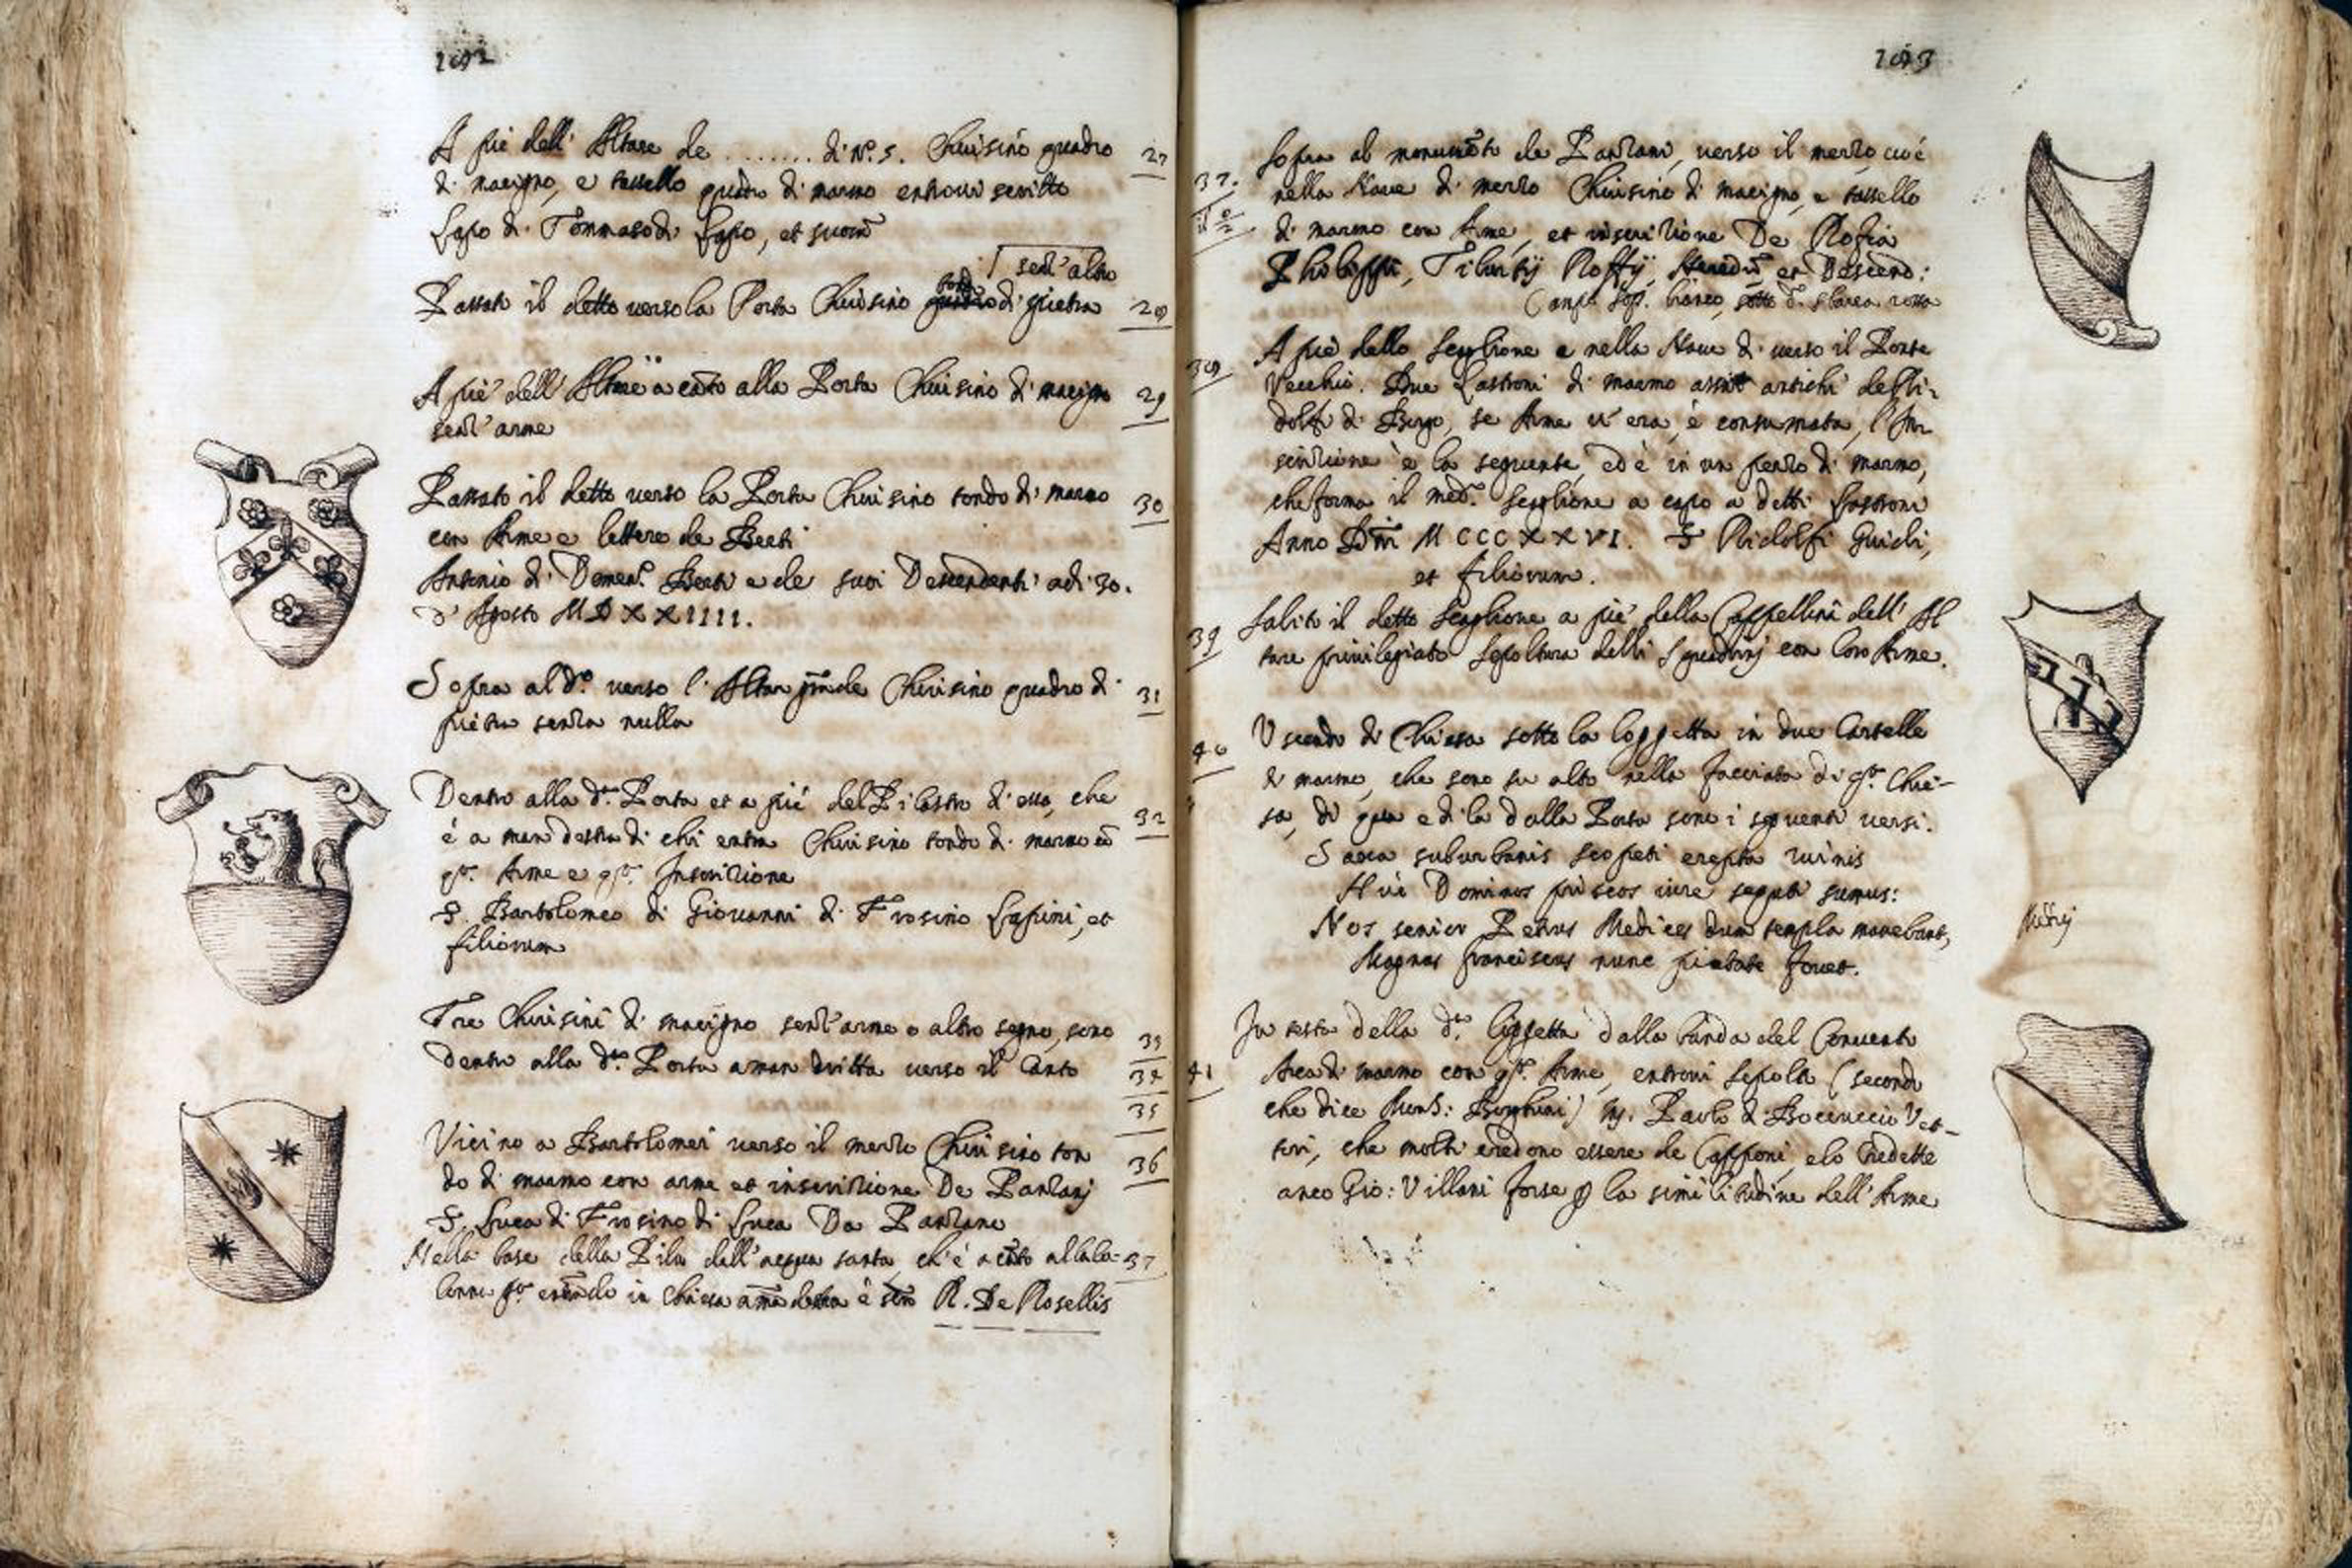 A piè dell' Altare de ........ di N. S. Chiusino quadro 27
di macigno, e tassello quadro di marmo entrovi scritto
Lapo di Tommaso di Lapo, et suorum
senz' altro
Passato il detto verso la Porta Chiusino tondo di pietra 28
A piè dell' Altare a canto alla Porta Chiusino di macigno 29
senz' arme
Passato il detto verso la Porta Chiusino tondo di marmo 30
con Arme e lettere de Berti
Antonio di Domen.º Berti e de suoi Descendenti adi 30.
d' Agosto MDXXIIII.
Sopra al d.º verso l' Altar grande Chiusino quadro di 31
pietra senza nulla
Dentro alla d.ª Porta et a piè del Pilastro di essa, che
è a man destra di chi entra Chiusino tondo di marmo cō 32
q.ta Arme e q.ta Inscrizione
S. Bartolomeo di Giovanni di Frosino Lapini, et
filiorum
Tre Chiusini di macigno senz' arme o altro segno, sono 33
dentro alla d.ª Porta a man dritta verso il Canto 34
35
Vicino a Bartolomei verso il mezzo Chiusino ton
do di marmo con arme et inscrizione De Panzanj 36
S. Luca di Frosino di Luca Da Panzano
Nella base della Pila dell' acqua santa, ch' è a cāto alla co- 37
lonna entrando in Chiesa a mā destra è R. De Rosellis
Sopra al monumēto de Panzani, verso il mezzo cioè
37. nella Nave di mezzo Chiusino di macigno, e tassello
di marmo con Arme, et inscrizione De Rofia
Tiburtij Roffij, Heredū et Descend:
Campo sop. bianco, sotto d.ª sbarra rossa
A piè dello scaglione e nella Nave di verso il Ponte
38 Vecchio. Due Lastroni di marmo assai antichi de Ri-
dolfi di Borgo, se Arme v' era, è consumata, l' In
scrizione è la seguente, ed è in un pezzo di marmo,
che forma il med.º scaglione a capo a detti Lastroni
Anno Dn̄i MCCCXXVI. S Ridolfi Guidi,
et filiorum.
Salito il detto Scaglione a piè della Cappellina dell' Al
39 tare privilegiato Sepoltura delli Squadrinj con loro Arme.
40 Uscendo di Chiesa sotto la loggetta in due Cartelle
di marmo, che sono su alto nella facciata di q.ta Chie-
sa, di qua e di la dalla Porta sono i seguenti versi.
Saxa suburbanis scopeti erepta ruinis
Huc Dominos priscos iure sequuti sumus:
Nos senior Petrus Medices dum templa manebant,
Magnus franciscus nunc pietate fovet.
In testa della d.ª loggetta dalla banda del Convento
41 Arca di marmo con q.ta Arme, entrovi sepolto (secondo
che dice Mons: Borghini) M. Paolo di Boccuccio Vet-
tori, che molti credono essere de Capponi, e lo credette
anco Gio: Villani forse p la similitudine dell' Arme